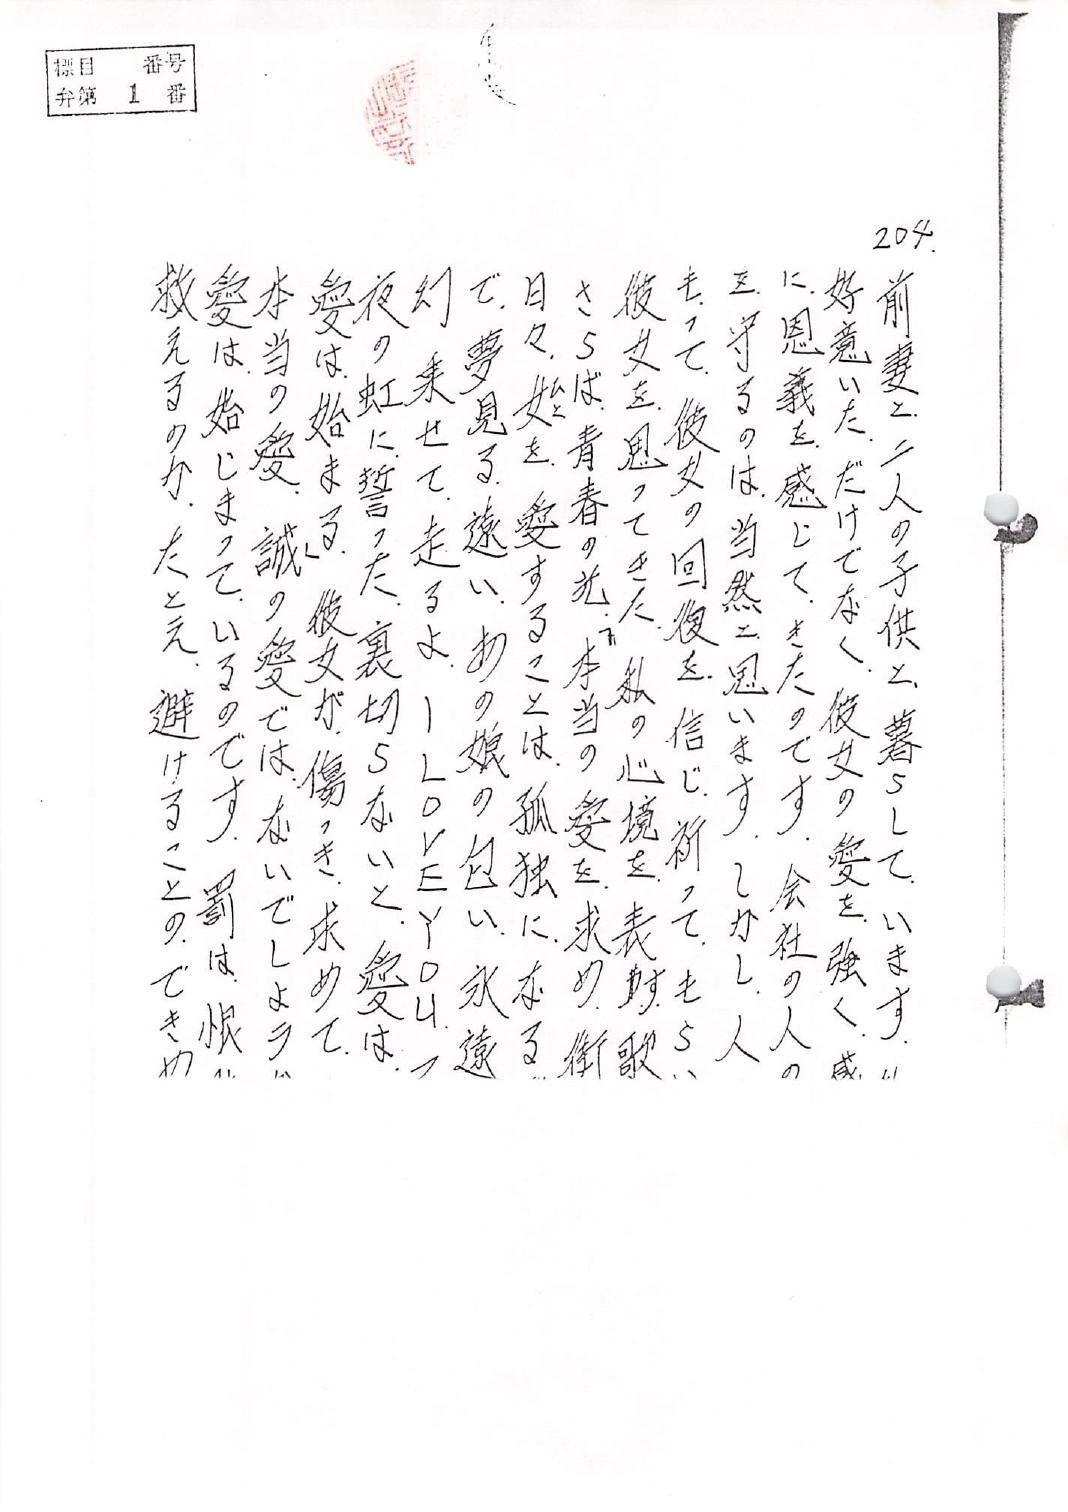 標目 番号
弁第 1 番
204.
前妻と、二人の子供と、暮らして、います.
好意いた.だけでなく、彼女の愛を、強く、感
に、恩義を、感じて、きたのです. 会社の人の
を、守るのは、当然と、思います. しかし、人
もって、彼女の回復を、信じ、祈って、もらい
彼女を、思ってきた、私の心境を、表す、歌
さらば、青春の光、本当の愛を、求め、街
日々、女(ひと)を、愛することは、孤独に、なる
で、夢見る、遠い、あの娘の匂い、永遠
幻 乗せて、走るよ. I LOVE YOU.
夜の虹に、誓った、裏切らないと、愛は、
愛は、始まる、彼女が、傷つき、求めて、
本当の愛、誠の愛では、ないでしょうか
愛は、始じまって、いるのです. 罰は、恨
救えるのか、たとえ、避けることの、できぬ